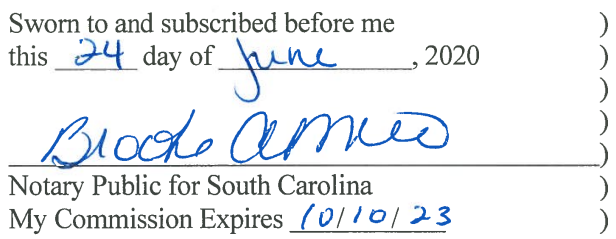 Sworn to and subscribed before me )
this 24 day of June, 2020 )
)
)
Brooke )
Notary Public for South Carolina )
My Commission Expires 10/10/23 )